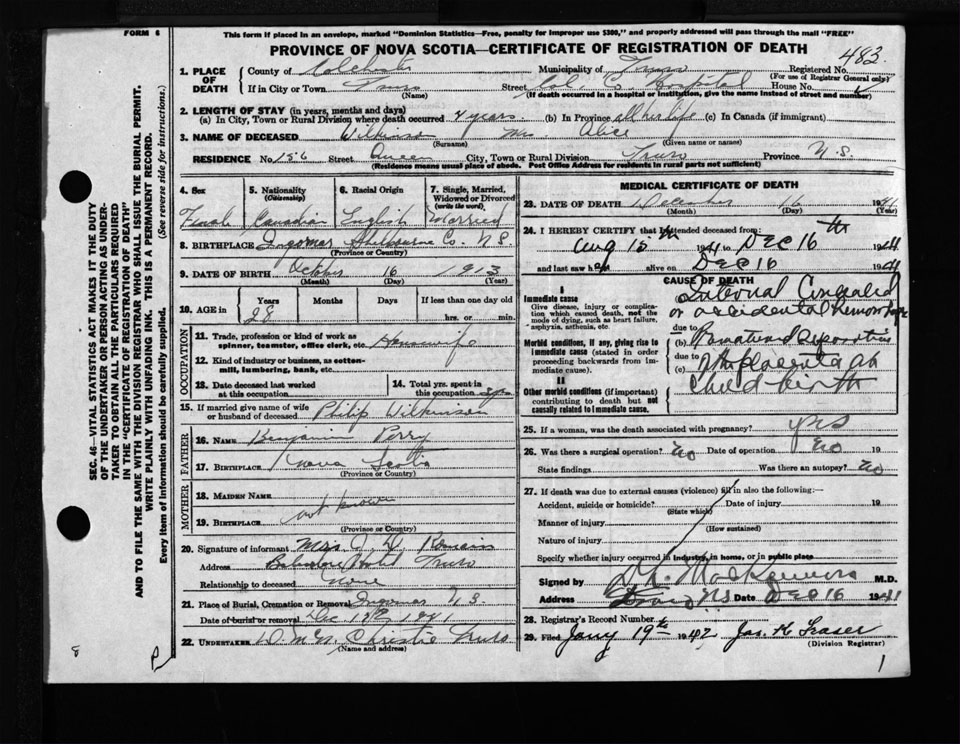 This form if placed in an envelope, marked "Dominion Statistics—Free, penalty for improper use $300," and properly addressed will pass through the mail "FREE"
FORM 6
PROVINCE OF NOVA SCOTIA—CERTIFICATE OF REGISTRATION OF DEATH
483
1. PLACE OF DEATH
County of Colchester Municipality of Truro Registered No.
(For use of Registrar General only)
If in City or Town Truro Street Hospital House No.
(Name) (If death occurred in a hospital or institution, give the name instead of street and number)
2. LENGTH OF STAY (in years, months and days)
(a) In City, Town or Rural Division where death occurred 4 years. (b) In Province all her life (c) In Canada (if immigrant)
3. NAME OF DECEASED Wilkinson Mrs Alice
(Surname) (Given name or names)
RESIDENCE No. 156 Street Queen City, Town or Rural Division Truro Province N.S.
(Residence means usual place of abode. Post Office Address for residents in rural parts not sufficient)
4. Sex 5. Nationality (Citizenship) 6. Racial Origin 7. Single, Married, Widowed or Divorced (write the word)
Female Canadian English Married
8. BIRTHPLACE Ingomar Shelburne Co. N.S.
(Province or Country)
9. DATE OF BIRTH October 16 1913
(Month) (Day) (Year)
10. AGE in Years Months Days If less than one day old
28 hrs. or min.
OCCUPATION
11. Trade, profession or kind of work as spinner, teamster, office clerk, etc. Housewife
12. Kind of industry or business, as cotton-mill, lumbering, bank, etc.
13. Date deceased last worked at this occupation 14. Total yrs. spent in this occupation
15. If married give name of wife or husband of deceased Philip Wilkinson
FATHER
16. NAME Benjamin Perry
17. BIRTHPLACE Nova Scotia
(Province or Country)
MOTHER
18. MAIDEN NAME
not known
19. BIRTHPLACE
(Province or Country)
20. Signature of informant Mrs
Address Hotel Truro
Relationship to deceased None
21. Place of Burial, Cremation or Removal Ingomar N S
Date of burial or removal Dec 1941
22. UNDERTAKER Christie Truro
(Name and address)
MEDICAL CERTIFICATE OF DEATH
23. DATE OF DEATH December 16 1941
(Month) (Day)
24. I HEREBY CERTIFY that I attended deceased from:
Aug 15th 1941 to DEC 16th 1941
and last saw her alive on DEC 16 1941
CAUSE OF DEATH
I
Immediate cause
Give disease, injury or complication which caused death, not the mode of dying, such as heart failure, asphyxia, asthenia, etc.
Internal Concealed
or accidental hemorrhage
due to
Morbid conditions, if any, giving rise to immediate cause (stated in order proceeding backwards from immediate cause).
(b) Premature separation
due to
(c) of the placenta at
child birth
II
Other morbid conditions (if important) contributing to death but not causally related to immediate cause.
25. If a woman, was the death associated with pregnancy? yes
26. Was there a surgical operation? No Date of operation No 19
State findings Was there an autopsy? No
27. If death was due to external causes (violence) fill in also the following:—
Accident, suicide or homicide? Date of injury 19
(State which)
Manner of injury
(How sustained)
Nature of injury
Specify whether injury occurred in industry, in home, or in public place
Signed by M.D.
Address Truro N.S Date DEC 16 1941
28. Registrar's Record Number
29. Filed Jany 19th 1942 Jas. H Fraser
(Division Registrar)
1
SEC. 46—VITAL STATISTICS ACT MAKES IT THE DUTY
OF THE UNDERTAKER OR PERSON ACTING AS UNDER-
TAKER TO OBTAIN ALL THE PARTICULARS REQUIRED
IN THE "CERTIFICATE OF REGISTRATION OF DEATH"
AND TO FILE THE SAME WITH THE DIVISION REGISTRAR WHO SHALL ISSUE THE BURIAL PERMIT.
WRITE PLAINLY WITH UNFADING INK. THIS IS A PERMANENT RECORD.
Every item of information should be carefully supplied. (See reverse side for instructions.)
8
P